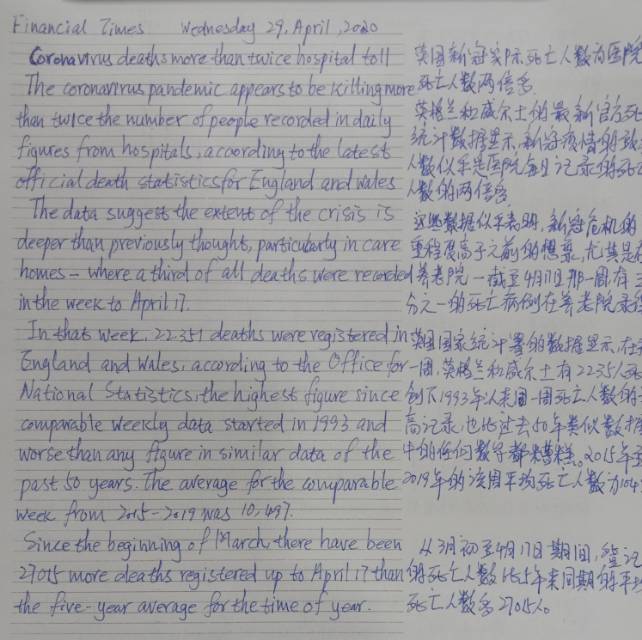 Financial Times Wednesday 29, April, 2020
Coronavirus deaths more than twice hospital toll
The coronavirus pandemic appears to be killing more
than twice the number of people recorded in daily
figures from hospitals, acoording to the latest
official death statistics for England and wales
The data suggest the extent of the crisis is
deeper than previously thought, particularly in care
homes – where a third of all deaths were recorded
in the week to April 17.
In that week, 22.351 deaths were registered in
England and Wales, according to the Office for
National Statistics, the highest figure since
comparable weekly data started in 1993 and
worse than any figure in similar data of the
past 50 years. The average for the comparable
week from 2015-2019 was 10,497.
Since the beginning of March, there have been
27015 more deaths registered up to April 17 than
the five-year average for the time of year.
英国新冠实际死亡人数为医院
死亡人数两倍多
英格兰和威尔士的最新官方死
统计数据显示,新冠疫情的致
人数似乎是医院每日记录的死
人数的两倍多
这些数据似乎表明,新冠危机的
重程度高于之前的想象,尤其是在
养老院 – 截至4月17日那一周有三
分之一的死亡病例在养老院录
英国国家统计署的数据显示,在
一周,英格兰和威尔士有22351人死
创下1993年以来周一周死亡人数的
高记录,也比过去50年类似数据
中的任何数字都糟糕。2015年至
2019年的该周平均死亡人数为104
从3月初至4月17日期间,登记
的死亡人数比5年来同期的平均
死亡人数多27015人。